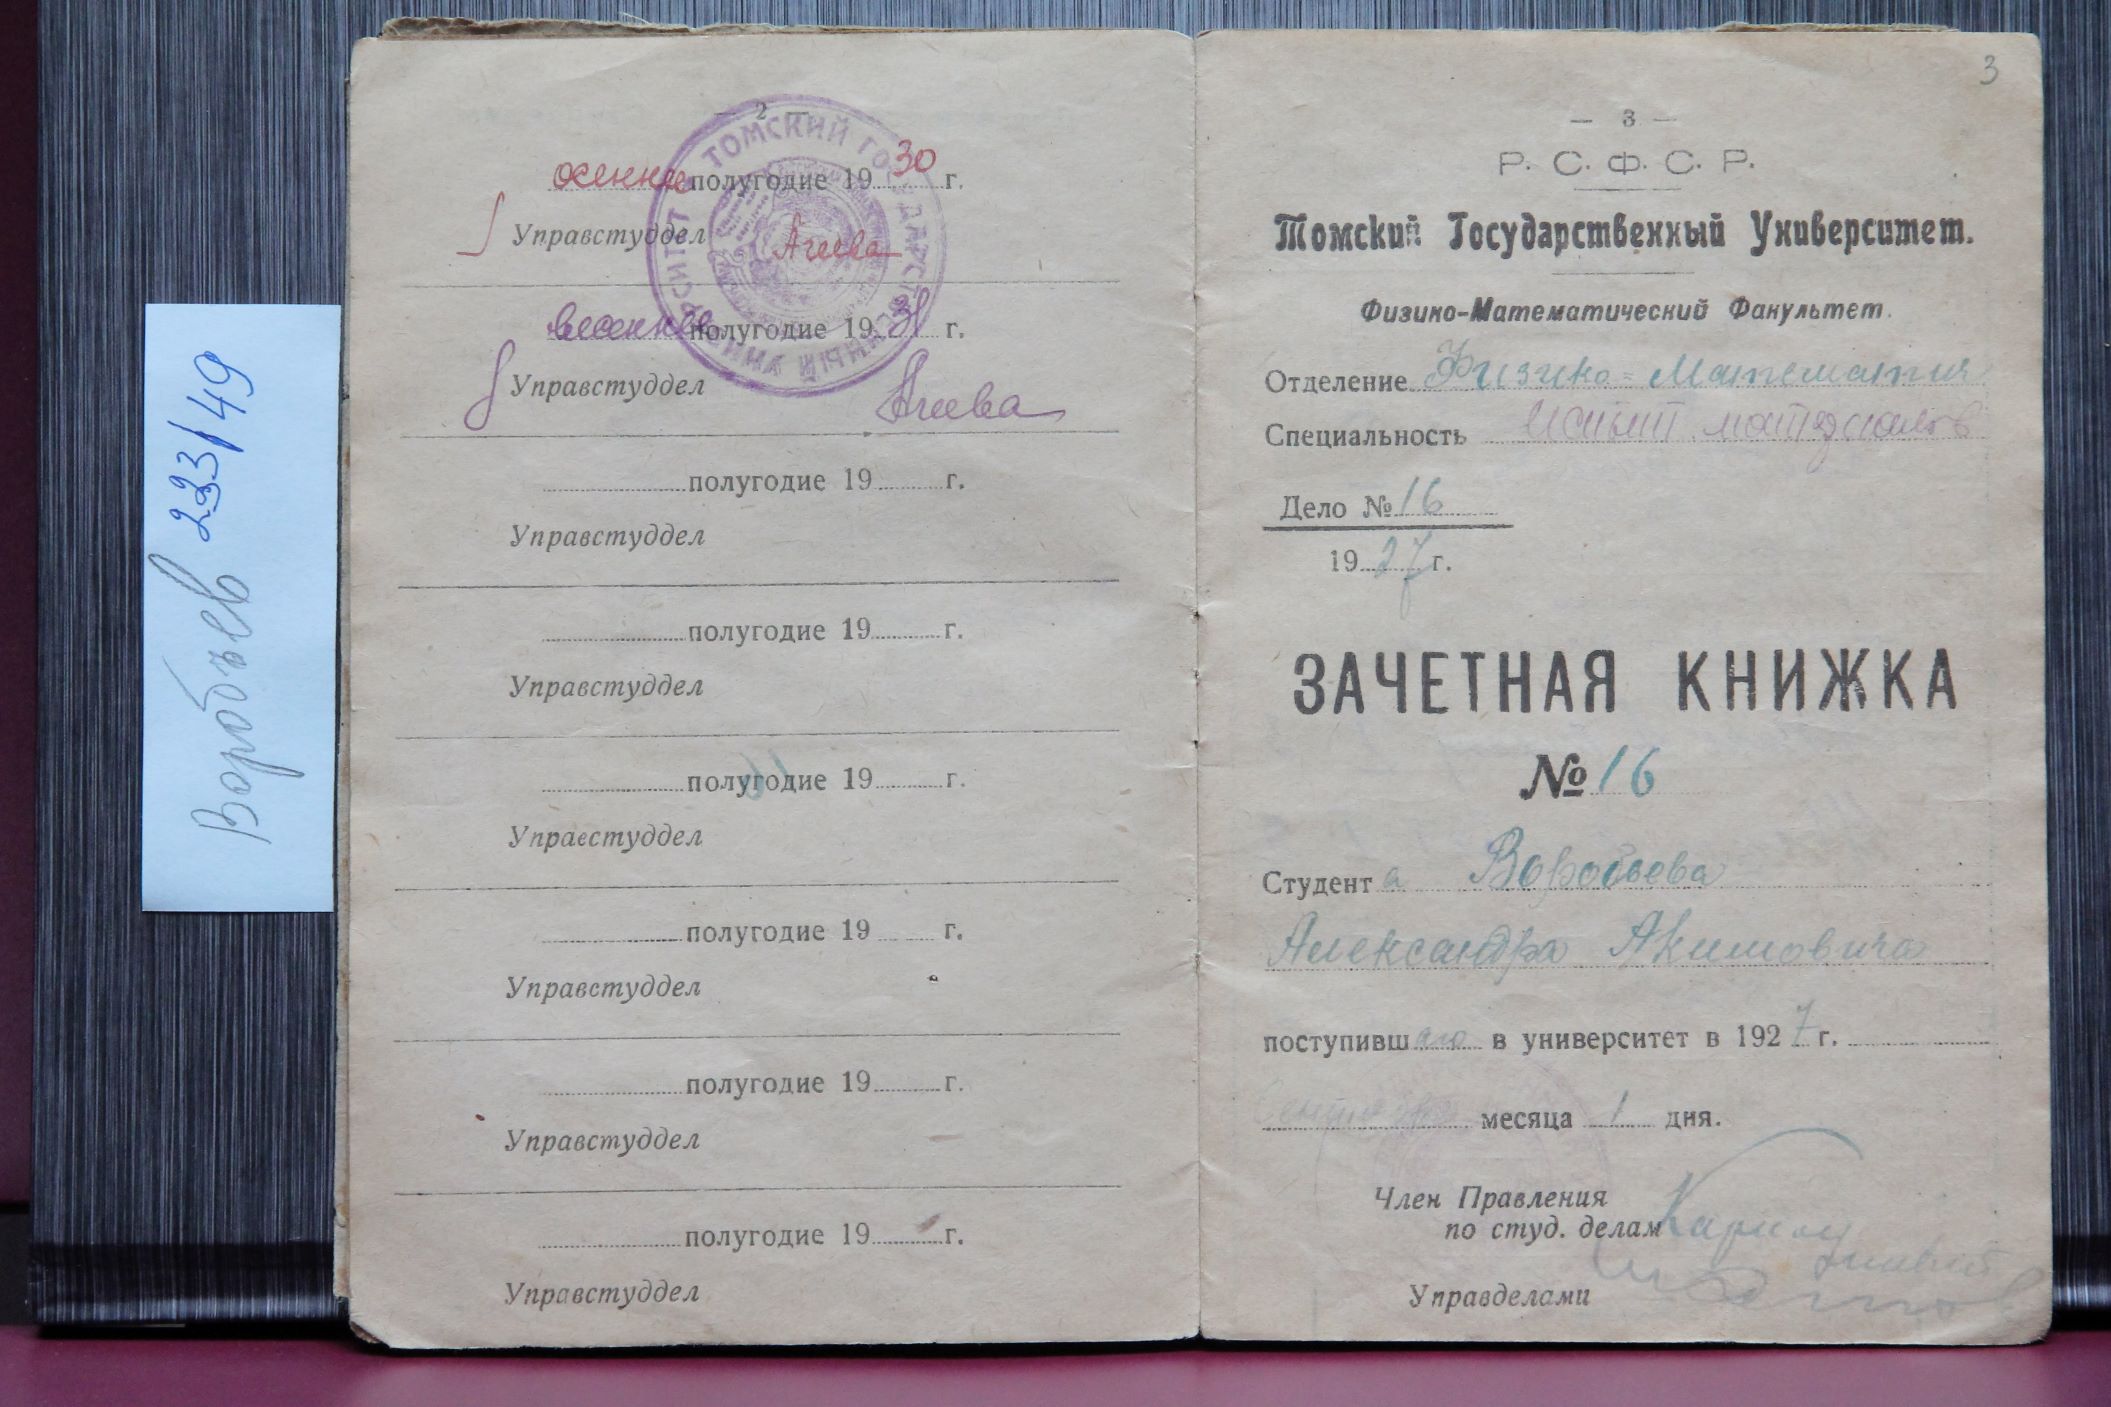 Воробьев 223/49
— 2 —
ТОМСКИЙ ГОСУДАРСТВЕННЫЙ УНИВЕРСИТЕТ
осеннее полугодие 1930 г.
Управстуддел Агеева
весеннее полугодие 1931 г.
Управстуддел Агеева
полугодие 19 г.
Управстуддел
полугодие 19 г.
Управстуддел
полугодие 19 г.
Управстуддел
полугодие 19 г.
Управстуддел
полугодие 19 г.
Управстуддел
полугодие 19 г.
Управстуддел
3
— 3 —
Р. С. Ф. С. Р.
Томский Государственный Университет.
Физико-Математический Факультет.
Отделение Физико-Математич
Специальность Испыт. материалов
Дело № 16
1927 г.
ЗАЧЕТНАЯ КНИЖКА
№ 16
Студента Воробьева
Александра Акимовича
поступившаго в университет в 1927 г.
Сентября месяца 1 дня.
Член Правления
по студ. делам
Управделами